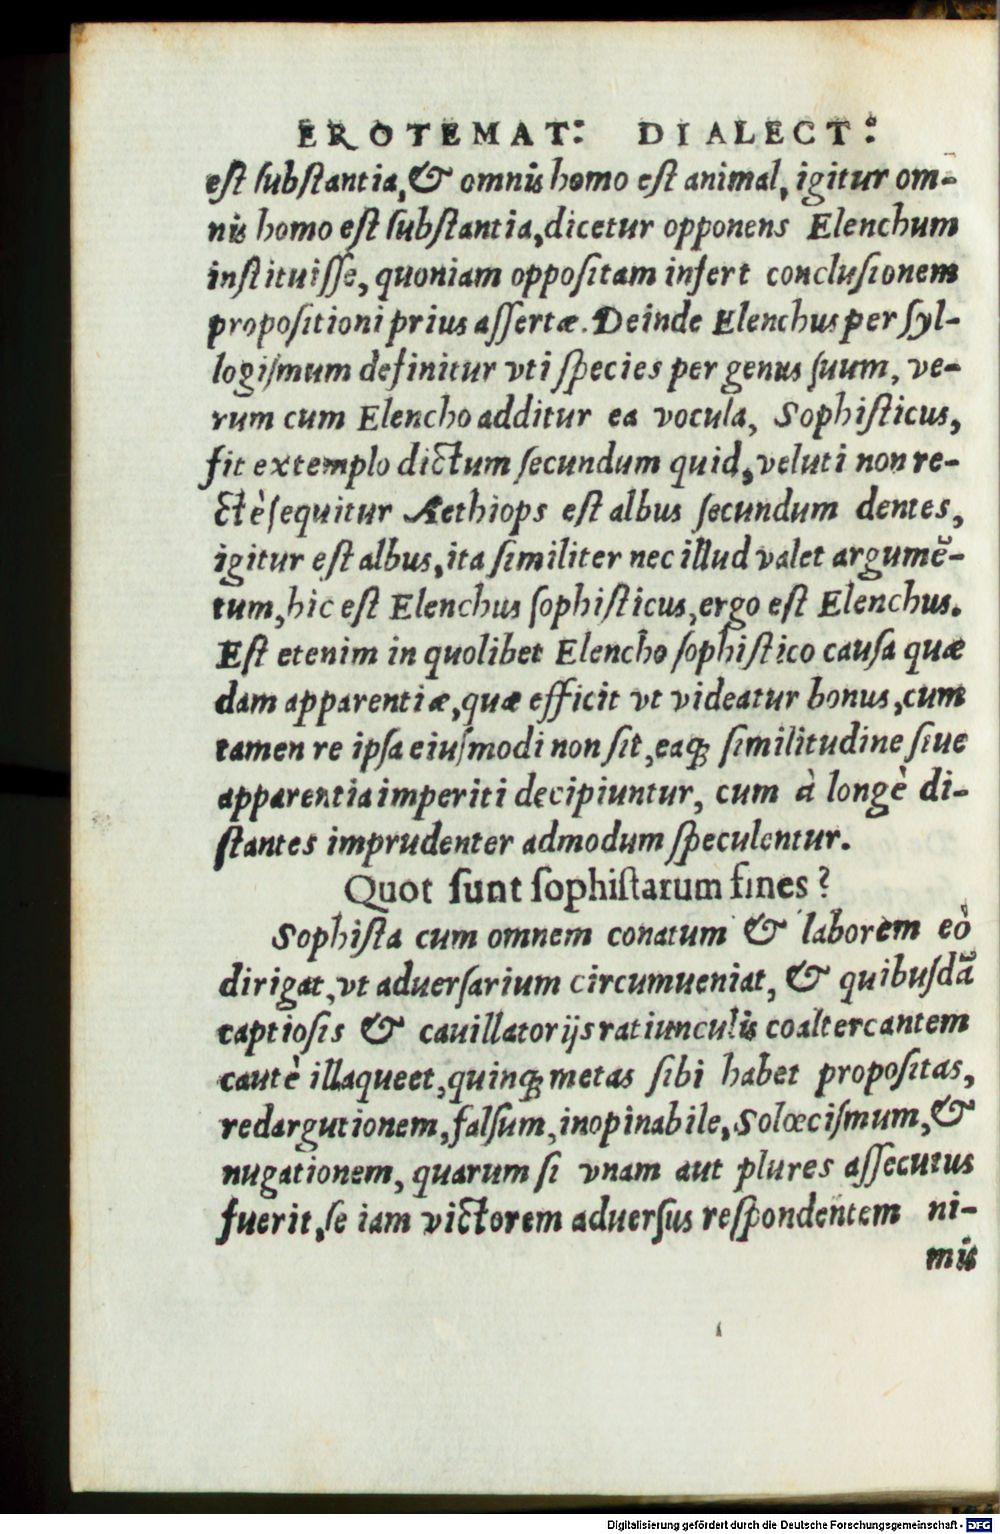 EROTEMAT: DIALECT:
est substantia, & omnis homo est animal, igitur om-
nis homo est substantia, dicetur opponens Elenchum
instituisse, quoniam oppositam infert conclusionem
propositioni prius assertæ. Deinde Elenchus per syl-
logismum definitur vti species per genus suum, ve-
rum cum Elencho additur ea vocula, Sophisticus,
fit extemplo dictum secundum quid, veluti non re-
ctè sequitur Aethiops est albus secundum dentes,
igitur est albus, ita similiter nec illud valet argumē-
tum, hic est Elenchus sophisticus, ergo est Elenchus.
Est etenim in quolibet Elencho sophistico causa quæ
dam apparentiæ, quæ efficit vt videatur bonus, cum
tamen re ipsa eiusmodi non sit, eaq́; similitudine siue
apparentia imperiti decipiuntur, cum à longè di-
stantes imprudenter admodum speculentur.
Quot sunt sophistarum fines?
Sophista cum omnem conatum & laborem eò
dirigat, vt aduersarium circumueniat, & quibusdā
captiosis & cauillatorijs ratiunculis coaltercantem
cautè illaqueet, quinq; metas sibi habet propositas,
redargutionem, falsum, inopinabile, Solœcismum, &
nugationem, quarum si vnam aut plures assecutus
fuerit, se iam victorem aduersus respondentem ni-
mis
Digitalisierung gefördert durch die Deutsche Forschungsgemeinschaft - DFG